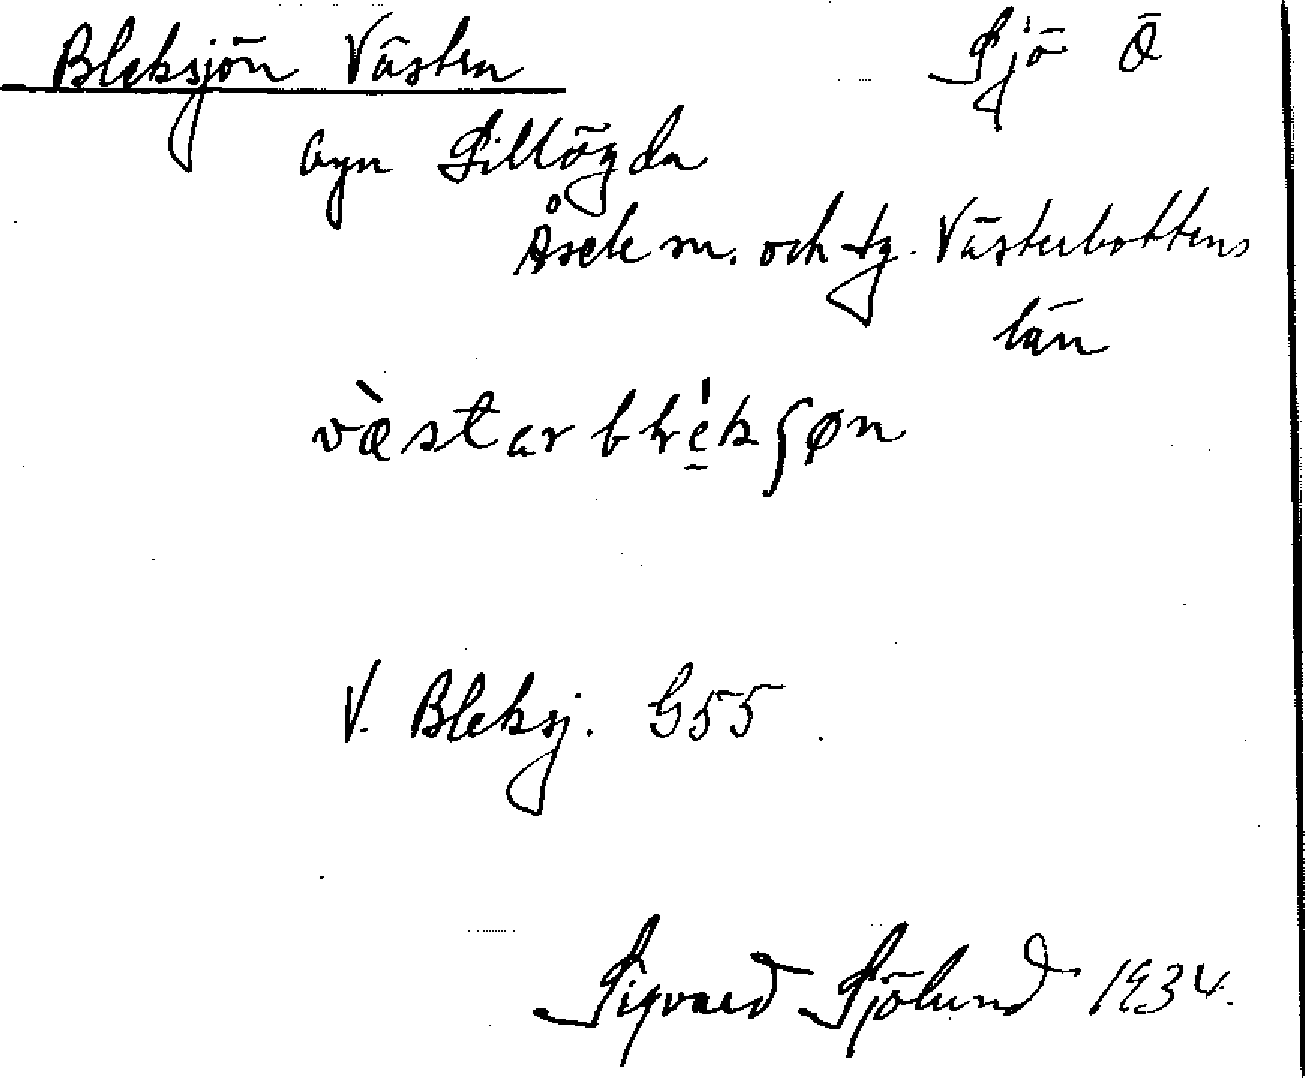 Bleksjön Västra Sjö Ö
byn Sillögda
Åsele sn. och tg. Västerbottens
län
væ̀starble̠̍kʃøn
V. Bleksj. G55
Sigvard Sjölund 1934.